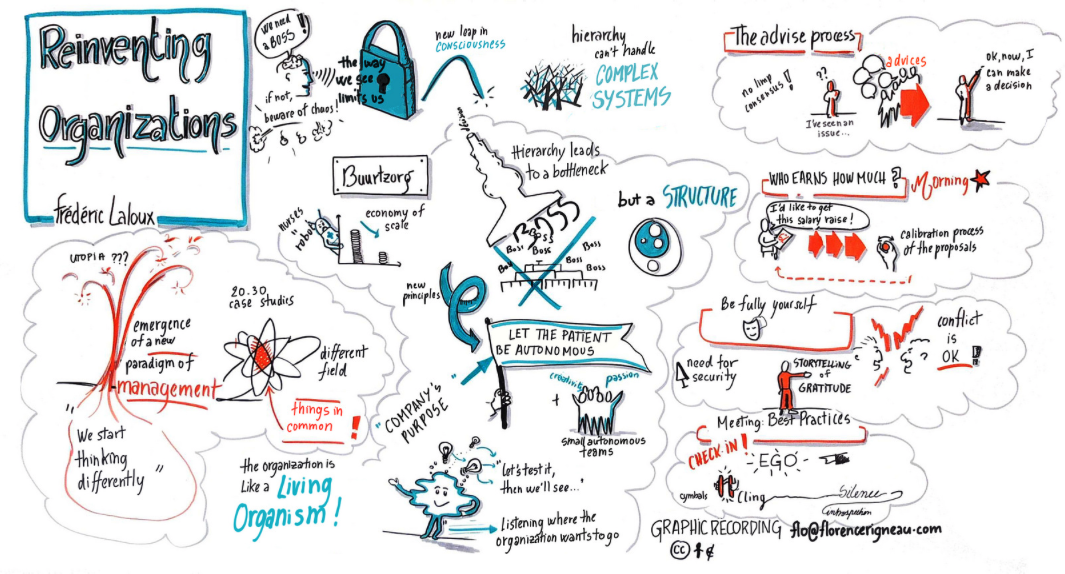 Reinventing
Organizations
Frédéric Laloux
We need
a BOSS!
if not,
beware of chaos!
the way
we see
limits us
new leap in
CONSCIOUSNESS
hierarchy
can't handle
COMPLEX
SYSTEMS
The advise process
no limp
consensus!
??
I've seen an
issue...
advices
ok, now, I
can make
a decision
Buurtzorg
nurses
"robot"
economy of
scale
Hierarchy leads
to a bottleneck
BOSS
Boss
Boss
Boss
Boss
Boss
Boss
but a STRUCTURE
WHO EARNS HOW MUCH?
Morning
I'd like to get
this salary raise!
calibration process
of the proposals
UTOPIA ???
emergence
of a new
paradigm of
management
"We start
thinking
differently"
20.30.
case studies
different
field
things in
common!
new
principles
LET THE PATIENT
BE AUTONOMOUS
"COMPANY'S
PURPOSE"
creativity
passion
+
small autonomous
teams
Be fully yourself
need for
security
STORYTELLING
of
GRATITUDE
conflict
is
OK!
the organization is
Like a Living
Organism!
"Let's test it,
then we'll see..."
Listening where the
organization wants to go
Meeting: Best Practices
CHECK IN!
EGO
cymbals
Cling
Silence
introspection
GRAPHIC RECORDING flo@florencerigneau-com
cc